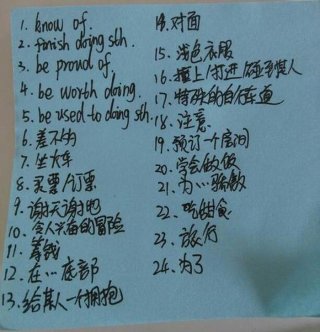 1. know of.
2. finish doing sth.
3. be proud of.
4. be worth doing.
5. be used to doing sth.
6. 差不多
7. 坐火车
8. 买票/订票
9. 谢天谢地
10. 令人兴奋的冒险
11. 筹钱
12. 在…底部
13. 给某人一个拥抱
14. 对面
15. 浅色衣服
16. 撞上/打进 碰到某人
17. 特殊的自行车道
18. 注意
19. 预订一个房间
20. 学会做饭
21. 为…骄傲
22. 吃甜食
23. 旅行
24. 为了